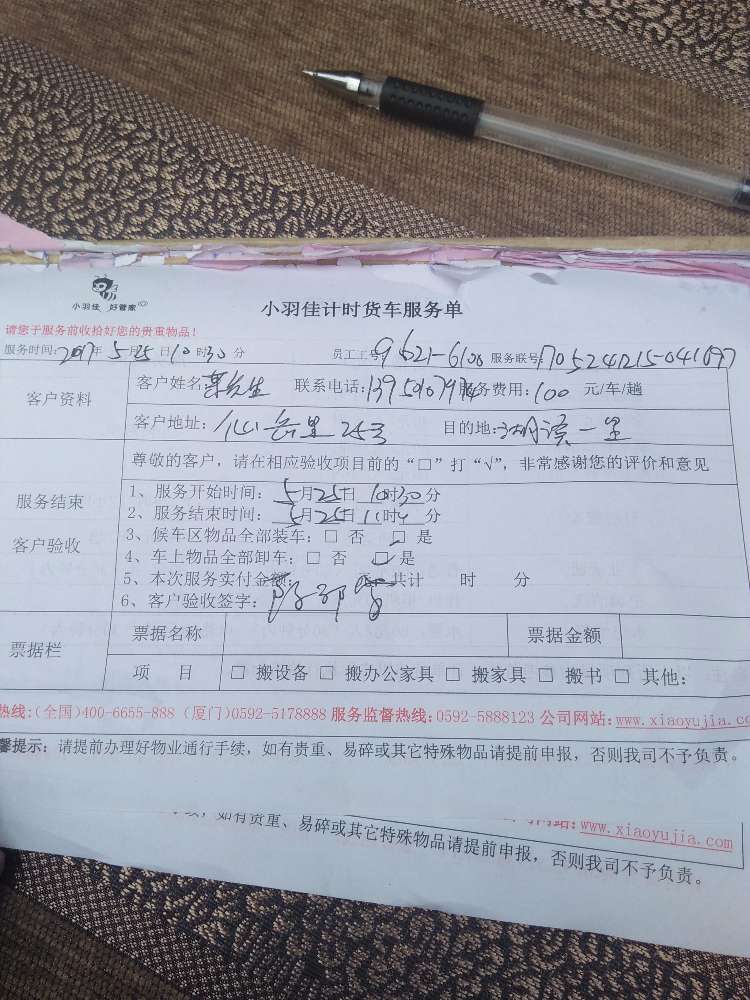 小羽佳 好管家
小羽佳计时货车服务单
请您于服务前收拾好您的贵重物品!
服务时间:2017年5月25日10时30分 员工工号9621-6108 服务联号1705241215-041097
客户资料
客户姓名 先生 联系电话: 服务费用:100 元/车/趟
客户地址:仙岳里253 目的地: 一里
尊敬的客户，请在相应验收项目前的“□”打“√”，非常感谢您的评价和意见
服务结束
客户验收
1、服务开始时间:5月25日10时30分
2、服务结束时间:5月25日11时 分
3、候车区物品全部装车:□ 否 ☑ 是
4、车上物品全部卸车:□ 否 ☑ 是
5、本次服务实付金额: 共计 时 分
6、客户验收签字:
票据栏
票据名称 票据金额
项 目 □ 搬设备 □ 搬办公家具 □ 搬家具 □ 搬书 □ 其他:
热线:(全国)400-6655-888 (厦门)0592-5178888 服务监督热线:0592-5888123 公司网站:www.xiaoyujia.co
馨提示: 请提前办理好物业通行手续，如有贵重、易碎或其它特殊物品请提前申报，否则我司不予负责。
网站:www.xiaoyujia.com
如有贵重、易碎或其它特殊物品请提前申报，否则我司不予负责。